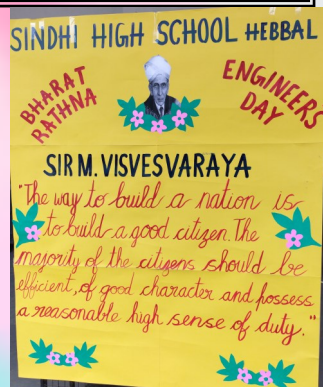 SINDHI HIGH SCHOOL HEBBAL
BHARAT
RATHNA
ENGINEERS
DAY
SIR M. VISVESVARAYA
"The way to build a nation is
to build a good citizen. The
majority of the citizens should be
efficient, of good character and possess
a reasonable high sense of duty."